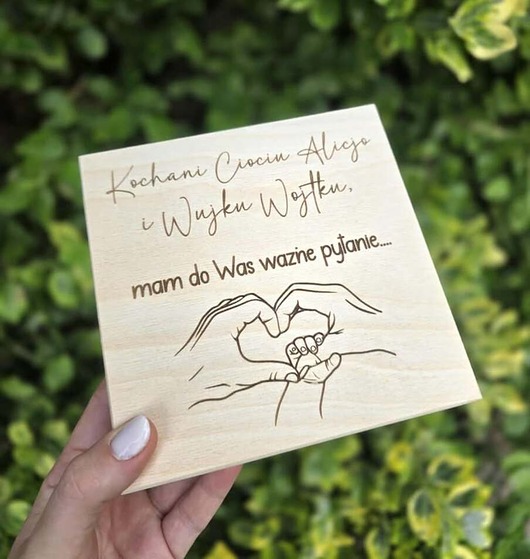 Kochani Ciociu Alicjo
i Wujku Wojtku,
mam do Was ważne pytanie....